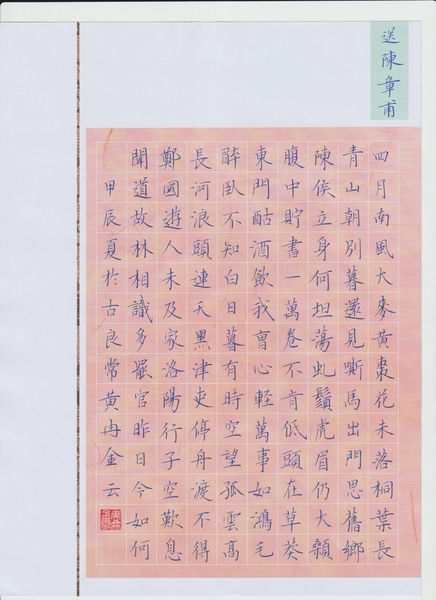 送陳章甫
四月南風大麥黃棗花未落桐葉長
青山朝別暮還見嘶馬出門思舊鄉
陳侯立身何坦蕩虬鬚虎眉仍大顙
腹中貯書一萬卷不肯低頭在草莽
東門酤酒飲我曹心輕萬事如鴻毛
醉臥不知白日暮有時空望孤雲高
長河浪頭連天黑津吏停舟渡不得
鄭國遊人未及家洛陽行子空歎息
聞道故林相識多罷官昨日今如何
甲辰夏於古良常黃冉金云